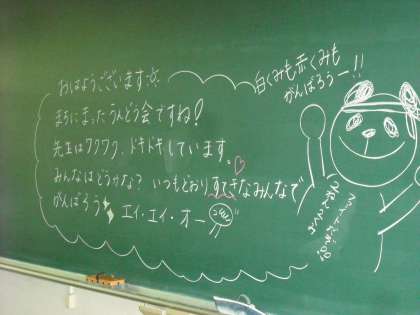 おはようございます
まちにまったうんどう会ですね!
先生はワクワク、ドキドキしています。
みんなはどうかな? いつもどおりすてきなみんなで
がんばろう エイ・エイ・オー
白くみも赤くみも
がんばろうー!!